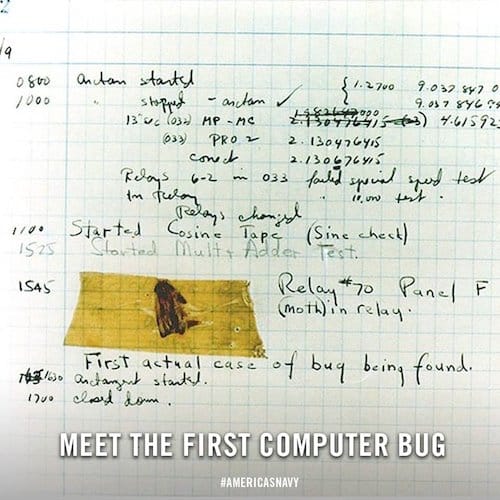 2
/9
0800 arctan started { 1.2700 9.037 847 0
1000 " stopped - arctan ✓ 9.037 846 99
13"uc (032) MP - MC 2.130476415 (-3) 4.61592
(033) PRO 2 2.130476415
conect 2.130676415
Relays 6-2 in 033 failed special speed test
In Relay " 10.000 test .
Relays changed
1100 Started Cosine Tape (Sine check)
1525 Started Mult + Adder Test.
1545 Relay #70 Panel F
(moth) in relay.
First actual case of bug being found.
1630 arctangent started.
1700 closed down.
MEET THE FIRST COMPUTER BUG
#AMERICASNAVY